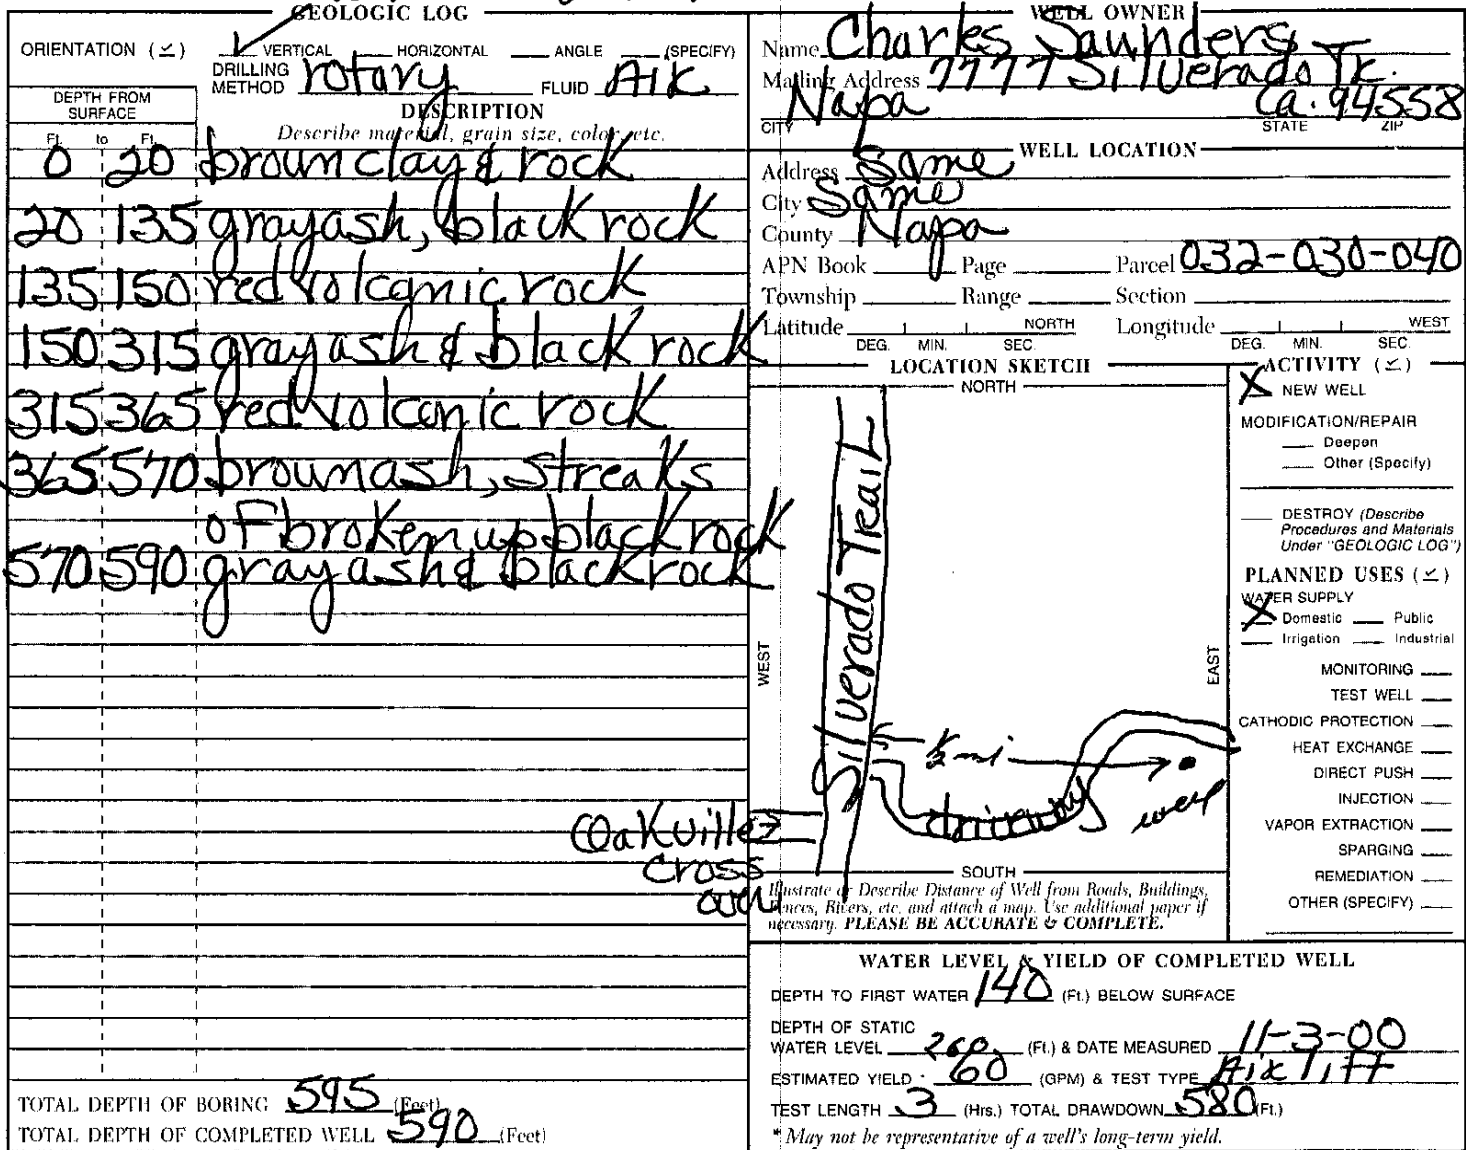 GEOLOGIC LOG
ORIENTATION (✓) ✓ VERTICAL ___ HORIZONTAL ___ ANGLE ___ (SPECIFY)
DRILLING METHOD rotary FLUID Air
DEPTH FROM SURFACE
Ft. to Ft.
DESCRIPTION
Describe material, grain size, color, etc.
0 20 brown clay & rock
20 135 gray ash, black rock
135 150 red volcanic rock
150 315 gray ash & black rock
315 365 red volcanic rock
365 570 brown ash, streaks
of broken up black rock
570 590 gray ash & black rock
TOTAL DEPTH OF BORING 595 (Feet)
TOTAL DEPTH OF COMPLETED WELL 590 (Feet)
WELL OWNER
Name Charles Saunders
Mailing Address 7777 Silverado Tr.
Napa Ca. 94558
CITY STATE ZIP
WELL LOCATION
Address Same
City Same
County Napa
APN Book ___ Page ___ Parcel 032-030-040
Township ___ Range ___ Section ___
Latitude ___ NORTH Longitude ___ WEST
DEG. MIN. SEC. DEG. MIN. SEC.
LOCATION SKETCH
NORTH
WEST
EAST
Silverado Trail
½ mi
driveway
well
Oakville
Cross
SOUTH
Illustrate or Describe Distance of Well from Roads, Buildings,
Fences, Rivers, etc. and attach a map. Use additional paper if
necessary. PLEASE BE ACCURATE & COMPLETE.
ACTIVITY (✓)
X NEW WELL
MODIFICATION/REPAIR
___ Deepen
___ Other (Specify)
___ DESTROY (Describe
Procedures and Materials
Under "GEOLOGIC LOG")
PLANNED USES (✓)
WATER SUPPLY
X Domestic ___ Public
___ Irrigation ___ Industrial
MONITORING ___
TEST WELL ___
CATHODIC PROTECTION ___
HEAT EXCHANGE ___
DIRECT PUSH ___
INJECTION ___
VAPOR EXTRACTION ___
SPARGING ___
REMEDIATION ___
OTHER (SPECIFY) ___
WATER LEVEL & YIELD OF COMPLETED WELL
DEPTH TO FIRST WATER 140 (Ft.) BELOW SURFACE
DEPTH OF STATIC
WATER LEVEL 260 (Ft.) & DATE MEASURED 11-3-00
ESTIMATED YIELD * 60 (GPM) & TEST TYPE Air lift
TEST LENGTH 3 (Hrs.) TOTAL DRAWDOWN 580 (Ft.)
* May not be representative of a well's long-term yield.